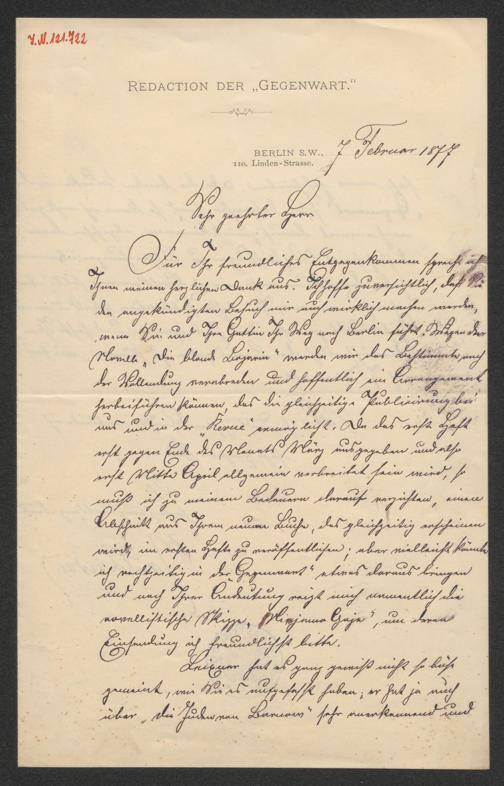 I.N. 121.722
REDACTION DER „GEGENWART.“
BERLIN S.W., 7 Februar 1877
110. Linden-Strasse.
Sehr geehrter Herr
Für Ihr freundliches Entgegenkommen spreche ich
Ihnen meinen herzlichen Dank aus. Ich hoffe zuversichtlich, daß Sie
den angekündigten Besuch mir auch wirklich machen werden,
wenn Sie und Ihre Gattin Ihr Weg nach Berlin führt. Wegen der
Novelle „Die blonde
werden wir das Bestimmte nach
der Vollendung verabreden und hoffentlich ein Arrangement
herbeiführen können, das die gleichzeitige Publicirung bei
uns und in der „Revue ermöglicht. Da das erste Heft
erst gegen Ende des Monats März ausgegeben und also
erst Mitte April allgemein verbreitet sein wird, so
muß ich zu meinem Bedauern darauf verzichten, einen
Abschnitt aus Ihrem neuen Buche, das gleichzeitig erscheinen
wird, im ersten Hefte zu veröffentlichen; aber vielleicht könnte
ich rechtzeitig in der „Gegenwart“ etwas daraus bringen
und nach Ihrer Andeutung reizt mich namentlich die
novellistische Skizze,
um deren
Einsendung ich freundlichst bitte.
Leixner hat es ganz gewiß nicht so böse
gemeint, wie Sie es aufgefaßt haben; er hat ja auch
über „die Juden von Barnow“ sehr anerkennend und